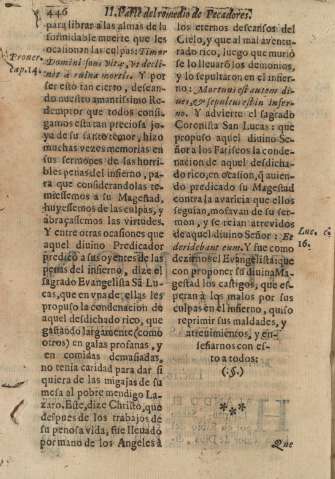 446 II. Parte del remedio de Pecadores.
para librar a las almas de la
formidable muerte que les
ocasionan las culpas: Timor
Domini fons vitæ, vt decli-
net à ruina mortis. Y por
ser esto tan cierto, desean-
do nuestro amantissimo Re-
demptor que todos consi-
gamos esta tan preciosa jo-
ya de su santo temor, hizo
muchas vezes memorias en
sus sermones de las horri-
bles penas del infierno, pa-
ra que considerandolas te-
miessemos a su Magestad,
huyessemos de las culpas, y
abraçassemos las virtudes.
Y entre otras ocasiones que
aquel diuino Predicador
predicò a sus oyentes de las
penas del infierno, dize el
sagrado Euangelista Sã Lu-
cas, que en vna de ellas les
propuso la condenacion de
aquel desdichado rico, que
gastando largamente (como
otros) en galas profanas, y
en comidas demasiadas,
no tenia caridad para dar si
quiera de las migajas de su
mesa al pobre mendigo La-
zaro. Este, dize Christo, que
despues de los trabajos de
su penosa vida, fue lleuado
por mano de los Angeles à
Prouer.
cap. 14.
los eternos descansos del
Cielo, y que al mal auentu-
rado rico, luego que muriò
se lo lleuarõ los demonios,
y lo sepultaron en el infier-
no: Mortuus est autem di-
ues, & sepultus est in infer-
no. Y advierte el sagrado
Coronista San Lucas: que
propuso aquel diuino Se-
ñor a los Fariseos la conde-
nacion de aquel desdicha-
do rico, en ocasion, q̃ auien-
do predicado su Magestad
contra la avaricia que ellos
seguian, mosavan de su ser-
mon, y se reian atrevidos
de aquel diuino Señor: Et
deridebant eum. Y fue como
dezirnos el Evangelista: que
con proponer su diuina Ma-
gestad los castigos, que es-
peran à los malos por sus
culpas en el infierno, quiso
reprimir sus maldades, y
atreuimientos, y en-
señarnos con es-
to a todos:
(.§.)
***
Luc. c.
16.
Que